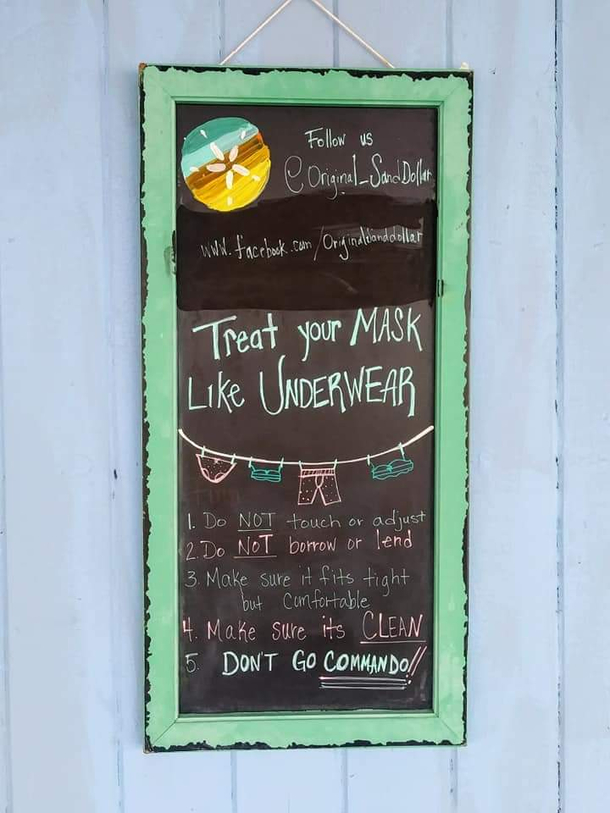 Follow us
@Original_SandDollar
www.facebook.com/Originalsanddollar
Treat your MASK
Like UNDERWEAR
1. Do NOT touch or adjust
2. Do NOT borrow or lend
3. Make sure it fits tight
but comfortable
4. Make sure its CLEAN
5. DON'T GO COMMANDO!!